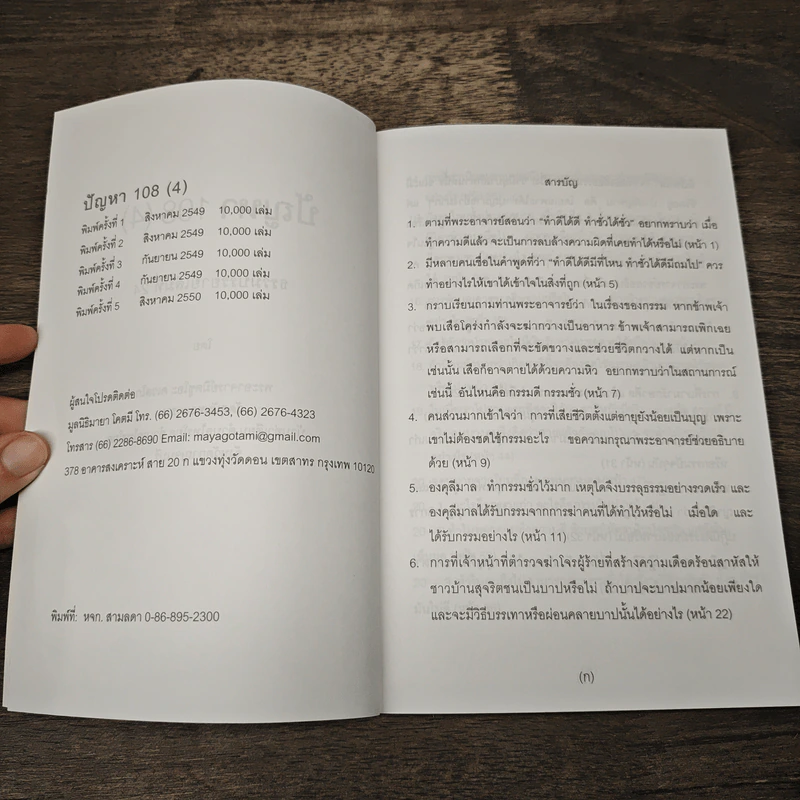 ปัญหา 108 (4)
พิมพ์ครั้งที่ 1 สิงหาคม 2549 10,000 เล่ม
พิมพ์ครั้งที่ 2 สิงหาคม 2549 10,000 เล่ม
พิมพ์ครั้งที่ 3 กันยายน 2549 10,000 เล่ม
พิมพ์ครั้งที่ 4 กันยายน 2549 10,000 เล่ม
พิมพ์ครั้งที่ 5 สิงหาคม 2550 10,000 เล่ม
ผู้สนใจโปรดติดต่อ
มูลนิธิมายา โคตมี โทร. (66) 2676-3453, (66) 2676-4323
โทรสาร (66) 2286-8690 Email: mayagotami@gmail.com
378 อาคารสงเคราะห์ สาย 20 ก แขวงทุ่งวัดดอน เขตสาทร กรุงเทพ 10120
พิมพ์ที่: หจก. สามลดา 0-86-895-2300
สารบัญ
1. ตามที่พระอาจารย์สอนว่า “ทำดีได้ดี ทำชั่วได้ชั่ว” อยากทราบว่า เมื่อ
ทำความดีแล้ว จะเป็นการลบล้างความผิดที่เคยทำได้หรือไม่ (หน้า 1)
2. มีหลายคนเชื่อในคำพูดที่ว่า “ทำดีได้ดีมีที่ไหน ทำชั่วได้ดีมีถมไป” ควร
ทำอย่างไรให้เขาได้เข้าใจในสิ่งที่ถูก (หน้า 5)
3. กราบเรียนถามท่านพระอาจารย์ว่า ในเรื่องของกรรม หากข้าพเจ้า
พบเสือโคร่งกำลังจะฆ่ากวางเป็นอาหาร ข้าพเจ้าสามารถเพิกเฉย
หรือสามารถเลือกที่จะขัดขวางและช่วยชีวิตกวางได้ แต่หากเป็น
เช่นนั้น เสือก็อาจตายได้ด้วยความหิว อยากทราบว่าในสถานการณ์
เช่นนี้ อันไหนคือ กรรมดี กรรมชั่ว (หน้า 7)
4. คนส่วนมากเข้าใจว่า การที่เสียชีวิตตั้งแต่อายุยังน้อยเป็นบุญ เพราะ
เขาไม่ต้องชดใช้กรรมอะไร ขอความกรุณาพระอาจารย์ช่วยอธิบาย
ด้วย (หน้า 9)
5. องคุลีมาล ทำกรรมชั่วไว้มาก เหตุใดจึงบรรลุธรรมอย่างรวดเร็ว และ
องคุลีมาลได้รับกรรมจากการฆ่าคนที่ได้ทำไว้หรือไม่ เมื่อใด และ
ได้รับกรรมอย่างไร (หน้า 11)
6. การที่เจ้าหน้าที่ตำรวจฆ่าโจรผู้ร้ายที่สร้างความเดือดร้อนสาหัสให้
ชาวบ้านสุจริตชนเป็นบาปหรือไม่ ถ้าบาปจะบาปมากน้อยเพียงใด
และจะมีวิธีบรรเทาหรือผ่อนคลายบาปนั้นได้อย่างไร (หน้า 22)
(ก)